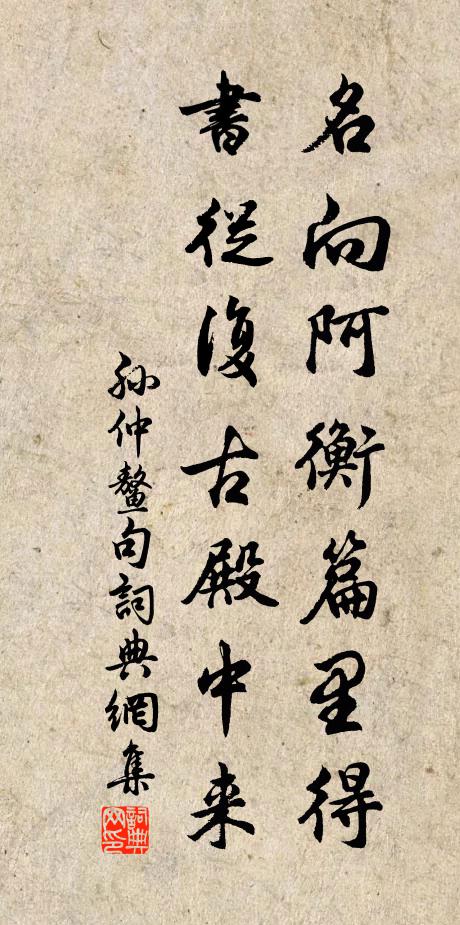 名向阿衡篇里得
書從復古殿中来
孙仲鳌句詞典網集
詞典网印